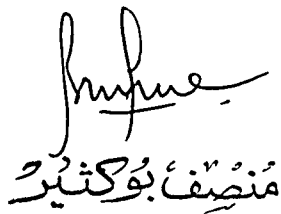 مُنصِف بُوكثير